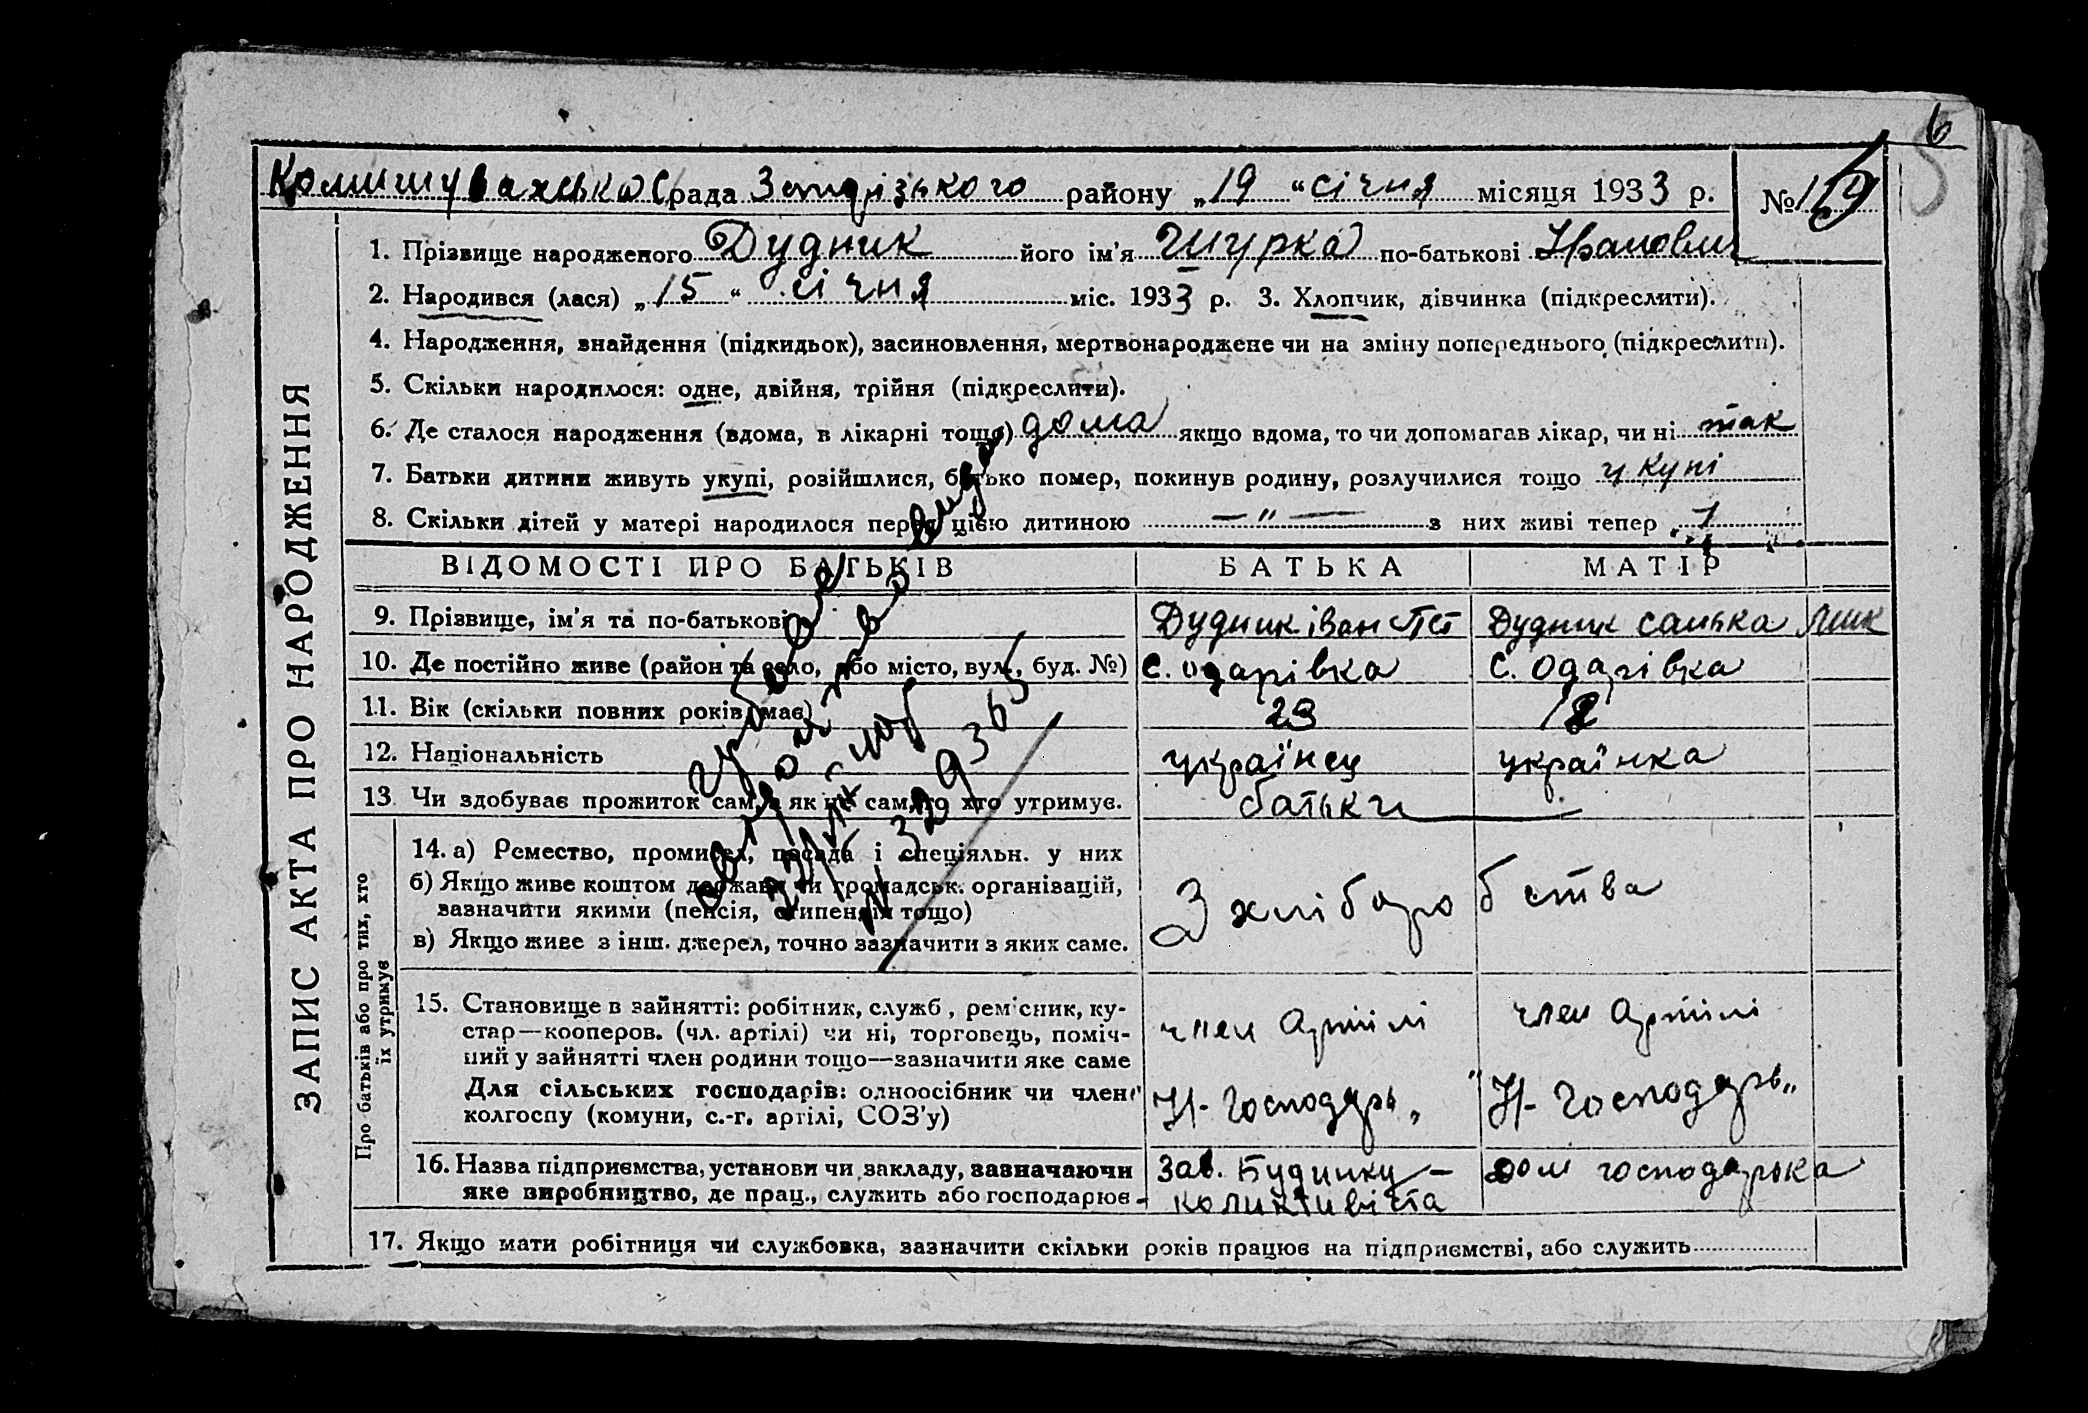 6
Комишувахська с/рада Запорізького району „19" січня місяця 1933 р. №
ЗАПИС АКТА ПРО НАРОДЖЕННЯ
1. Прізвище народженого Дудник його ім'я Шурка по-батькові Івановіч
2. Народився (лася) „15" січня міс. 1933 р. 3. Хлопчик, дівчинка (підкреслити).
4. Народження, знайдення (підкидьок), засиновлення, мертвонароджене чи на зміну попереднього (підкреслити).
5. Скільки народилося: одне, двійня, трійня (підкреслити).
6. Де сталося народження (вдома, в лікарні тощо) дома якщо вдома, то чи допомагав лікар, чи ні так
7. Батьки дитини живуть укупі, розійшлися, батько помер, покинув родину, розлучилися тощо укупі
8. Скільки дітей у матері народилося перед цією дитиною — " — з них живі тепер 1
ВІДОМОСТІ ПРО БАТЬКІВ БАТЬКА МАТІР
9. Прізвище, ім'я та по-батькові Дудник іван Дудник санька
10. Де постійно живе (район та село, або місто, вул., буд. №) с. одарівка с. одарівка
11. Вік (скільки повних років має) 23
12. Національність українец українка
13. Чи здобуває прожиток сам, а як не сам, то хто утримує. батьки
Про батьків або про тих, хто їх утримує
14. а) Ремество, промисел, посада і спеціяльн. у них
б) Якщо живе коштом держави чи громадськ. організацій,
зазначити якими (пенсія, стипендія тощо) З хліборобства
в) Якщо живе з інш. джерел, точно зазначити з яких саме.
15. Становище в зайнятті: робітник, служб., рем'сник, ку-
стар—кооперов. (чл. артілі) чи ні, торговець, поміч- член Артілі член Артілі
ний у зайнятті член родини тощо—зазначити яке саме
Для сільських господарів: одноосібник чи член „Н-Господарь„ „Н-Господарь„
колгоспу (комуни, с.-г. артілі, СОЗ'у)
16. Назва підприємства, установи чи закладу, зазначаючи Зав. Будинку - дом господарька
яке виробництво, де прац., служить або господарює - коликтивіста
17. Якщо мати робітниця чи службовка, зазначити скільки років працює на підприємстві, або служить